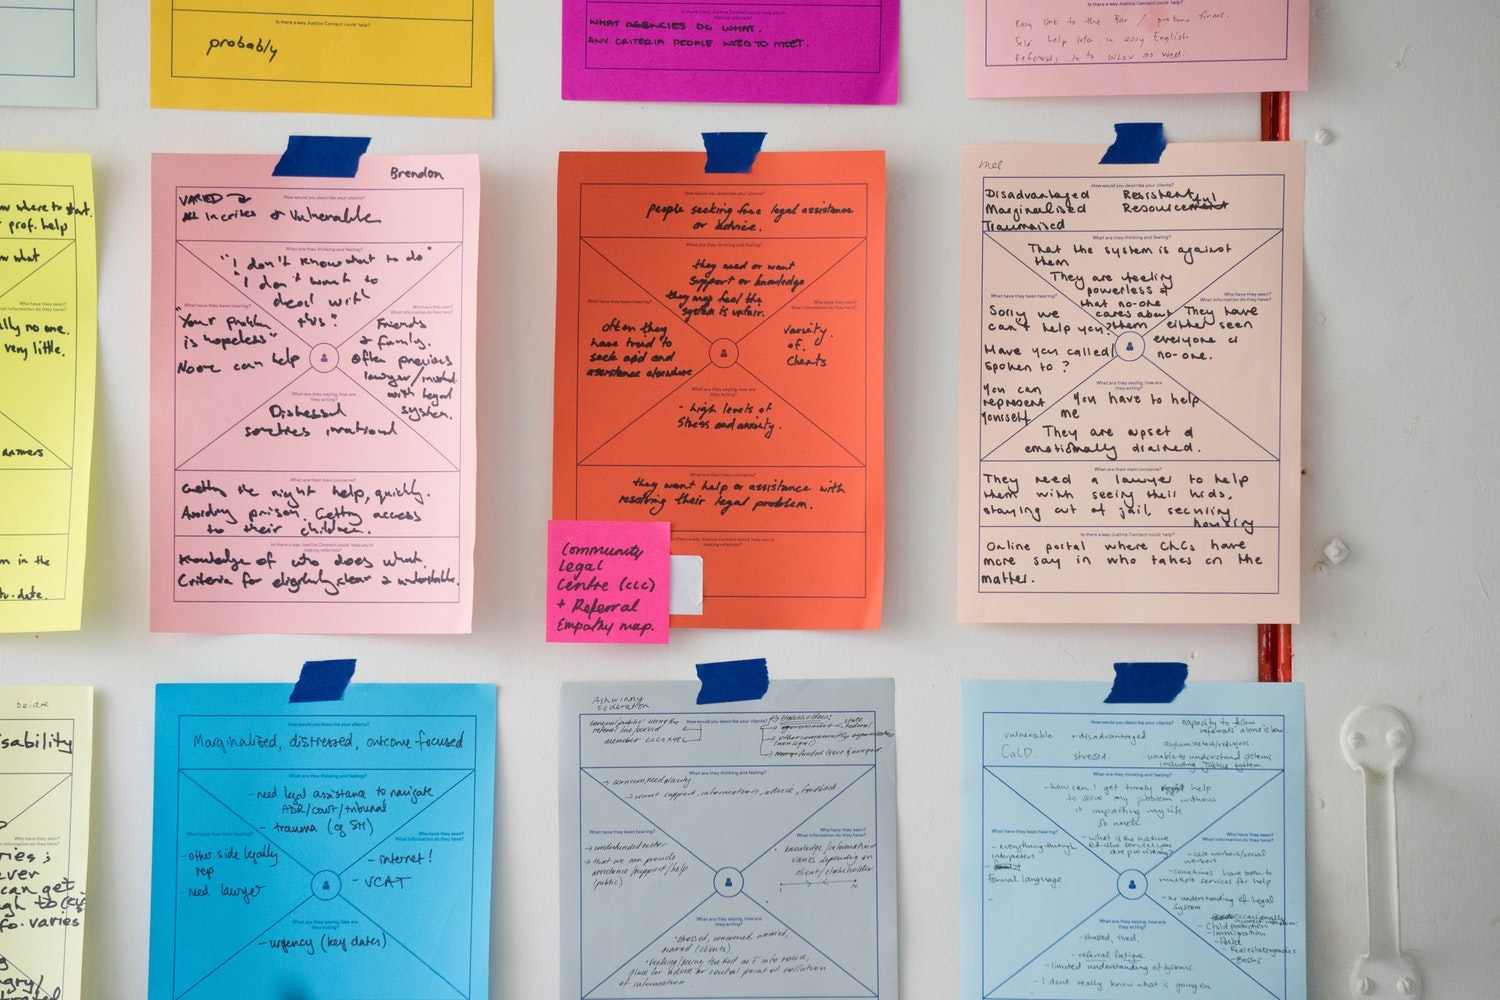 Is there a way Justice Connect could help?
probably
Is there a way Justice Connect could help you in
making referrals?
WHAT AGENCIES DO WHAT.
ANY CRITERIA PEOPLE NEED TO MEET.
help?
Easy link to the Bar / probono firms.
Self help info in easy English
Referrals in to WLSV as well.
where to start.
prof. help
what
Who have they seen?
What information do they have?
no one.
very little.
answers
in the
Brendon
How would you describe your clients?
VARIED
ALL In crises & Vulnerable
What are they thinking and feeling?
"I don't know what to do"
"I don't want to
deal with
this"
What have they been hearing?
"Your problem
is hopeless"
No one can help
Who have they seen?
What information do they have?
Friends
& family.
Often previous
lawyer/involved
with legal
system.
What are they saying, how are
they acting?
Distressed
sometimes irrational
What are their main concerns?
Getting the right help, quickly.
Avoiding prison. Getting access
to their children.
Is there a way Justice Connect could help you in
making referrals?
Knowledge of who does what.
Criteria for eligibility clear & understandable.
How would you describe your clients?
people seeking free legal assistance
or advice.
What are they thinking and feeling?
they need or want
support or knowledge
they may feel the
system is unfair.
What have they been hearing?
often they
have tried to
seek aid and
assistance elsewhere
Who have they seen?
What information do they have?
variety
of
clients
What are they saying, how are
they acting?
- high levels of
stress and anxiety.
What are their main concerns?
they want help or assistance with
resolving their legal problem.
Is there a way Justice Connect could help you in
making referrals?
Community
Legal
Centre (CLC)
+ Referral
Empathy map.
Mel
How would you describe your clients?
Disadvantaged Resistent
Marginalised Resourceful
Traumatised
What are they thinking and feeling?
That the system is against
them
They are feeling
powerless &
that no-one
cares about
them
What have they been hearing?
Sorry we
can't help you
Have you called/
spoken to?
You can
represent
yourself
Who have they seen?
What information do they have?
They have
either seen
everyone or
no-one.
What are they saying, how are
they acting?
You have to help
me
They are upset &
emotionally drained.
What are their main concerns?
They need a lawyer to help
them with seeing their kids,
staying out of jail, securing
housing
Is there a way Justice Connect could help?
Online portal where CLCs have
more say in who takes on the
matter.
Deidre
Who have they seen?
can get
info. varies
How would you describe your clients?
Marginalised, distressed, outcome focused
What are they thinking and feeling?
- need legal assistance to navigate
ADR/court/tribunal
- trauma (eg SH)
What have they been hearing?
- other side legally
rep
- need lawyer
Who have they seen?
What information do they have?
- internet!
- VCAT
What are they saying, how are
they acting?
- urgency (key dates)
Ashwinny
Federation
How would you describe your clients?
'General public' using the
referral line/service
member CLCs
Stakeholders:
government
state
federal
other community organisations
(non legal)
What are they thinking and feeling?
→ want support, information, advice, feedback
What have they been hearing?
→ underfunded sector
→ that we can provide
assistance/support/help
(public)
Who have they seen?
What information do they have?
knowledge/information
varies depending on
client/stakeholder
What are they saying, how are
they acting?
stressed, concerned, worried,
scared (clients)
place for advice or central point of collation
of information
How would you describe your clients?
vulnerable + disadvantaged
CaLD. stressed.
capacity to follow
referrals alone is low
asylum seekers/refugees.
unable to understand systems
including justice system.
What are they thinking and feeling?
- how can I get timely help
to solve my problem without
it impacting my life
so much
- what is the nature
of the service you
are providing?
What have they been hearing?
- everything through
interpreters
formal language
Who have they seen?
What information do they have?
- case workers/social
workers
- sometimes have been to
multiple services for help
- no understanding of legal
system
- Child protection
- Immigration
- Police
- Real estate agencies
- Bosses
What are they saying, how are
they acting?
- stressed, tired.
- referral fatigue
- limited understanding of systems.
- I dont really know what is going on